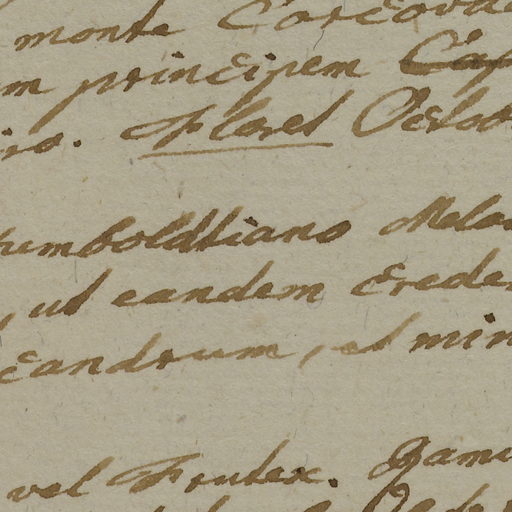 monte Corcova
m principem Cap
iro. Floret Octob
humboldtiano Mela
, ut eandem creder
candrum, et min
vel Frutex. Rami